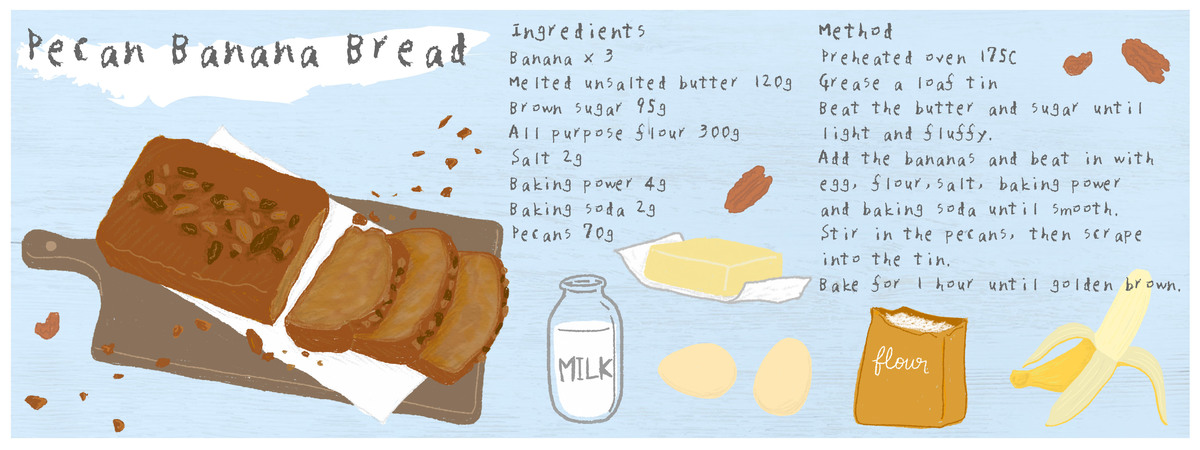 Pecan Banana Bread
Ingredients
Banana x 3
Melted unsalted butter 120g
Brown sugar 95g
All purpose flour 300g
Salt 2g
Baking power 4g
Baking soda 2g
Pecans 70g
Method
Preheated oven 175C
Grease a loaf tin
Beat the butter and sugar until
light and fluffy.
Add the bananas and beat in with
egg, flour, salt, baking power
and baking soda until smooth.
Stir in the pecans, then scrape
into the tin.
Bake for 1 hour until golden brown.
MILK
flour